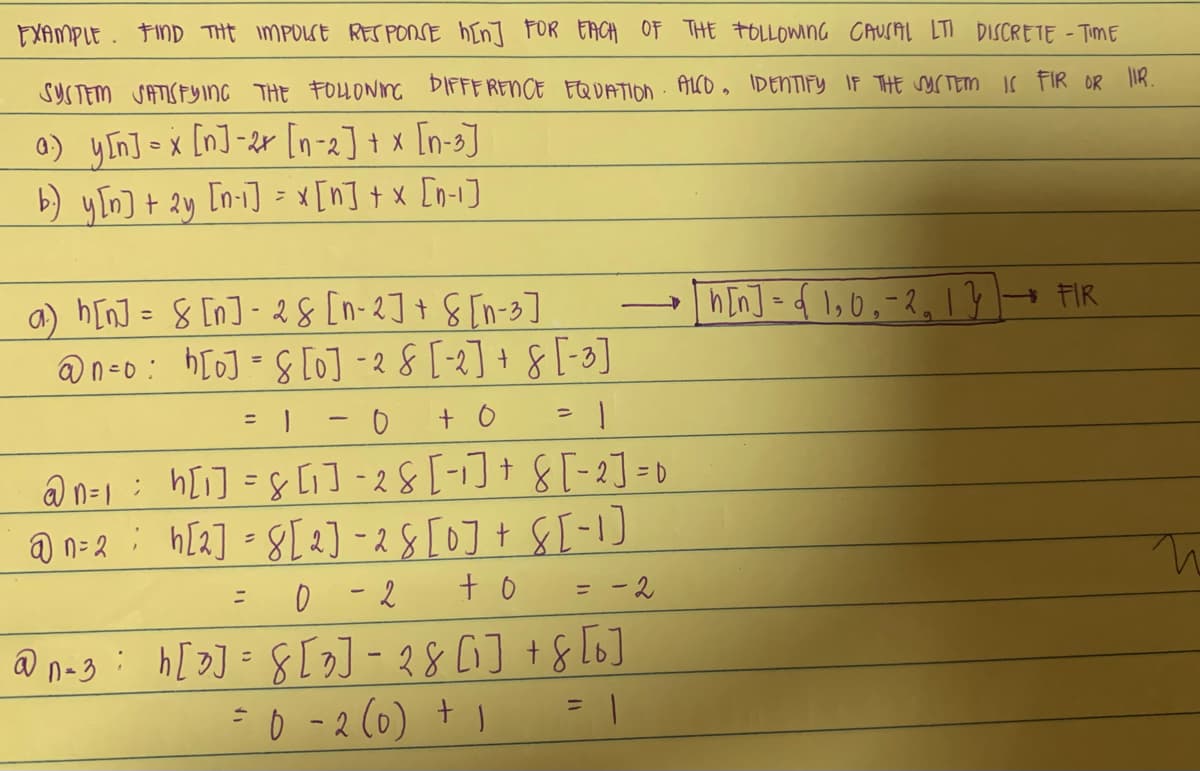 EXAMPLE. FIND THE IMPULSE RESPONSE h[n] FOR EACH OF THE FOLLOWING CAUSAL LTI DISCRETE-TIME
SYSTEM SATISFYING THE FOLLOWING DIFFERENCE EQUATION. ALSO, IDENTIFY IF THE SYSTEM IS FIR OR IIR.
a.) y[n] = x[n] - 2x[n-2] + x[n-3]
b.) y[n] + 2y[n-1] = x[n] + x[n-1]
a.) h[n] = δ[n] - 2δ[n-2] + δ[n-3] → h[n] = { 1, 0, -2, 1 } → FIR
@ n=0 : h[0] = δ[0] - 2δ[-2] + δ[-3]
= 1 - 0 + 0 = 1
@ n=1 : h[1] = δ[1] - 2δ[-1] + δ[-2] = 0
@ n=2 : h[2] = δ[2] - 2δ[0] + δ[-1]
= 0 - 2 + 0 = -2
@ n=3 : h[3] = δ[3] - 2δ[1] + δ[0]
= 0 - 2(0) + 1 = 1